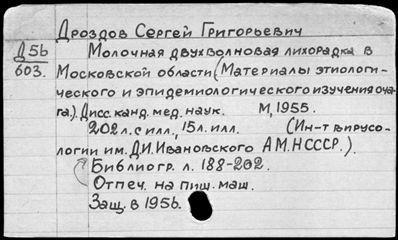 Дроздов Сергей Григорьевич
Д56
603.
Молочная двухволновая лихорадка в
Московской области (Материалы этиологи-
ческого и эпидемиологического изучения оча-
га.). Дисс. канд. мед. наук. М, 1955.
202 л. с илл., 15 л. илл. (Ин-т вирусо-
логии им. Д.И. Ивановского АМН СССР.).
Библиогр. л. 188-202.
Отпеч. на пиш. маш.
Защ. в 1956.